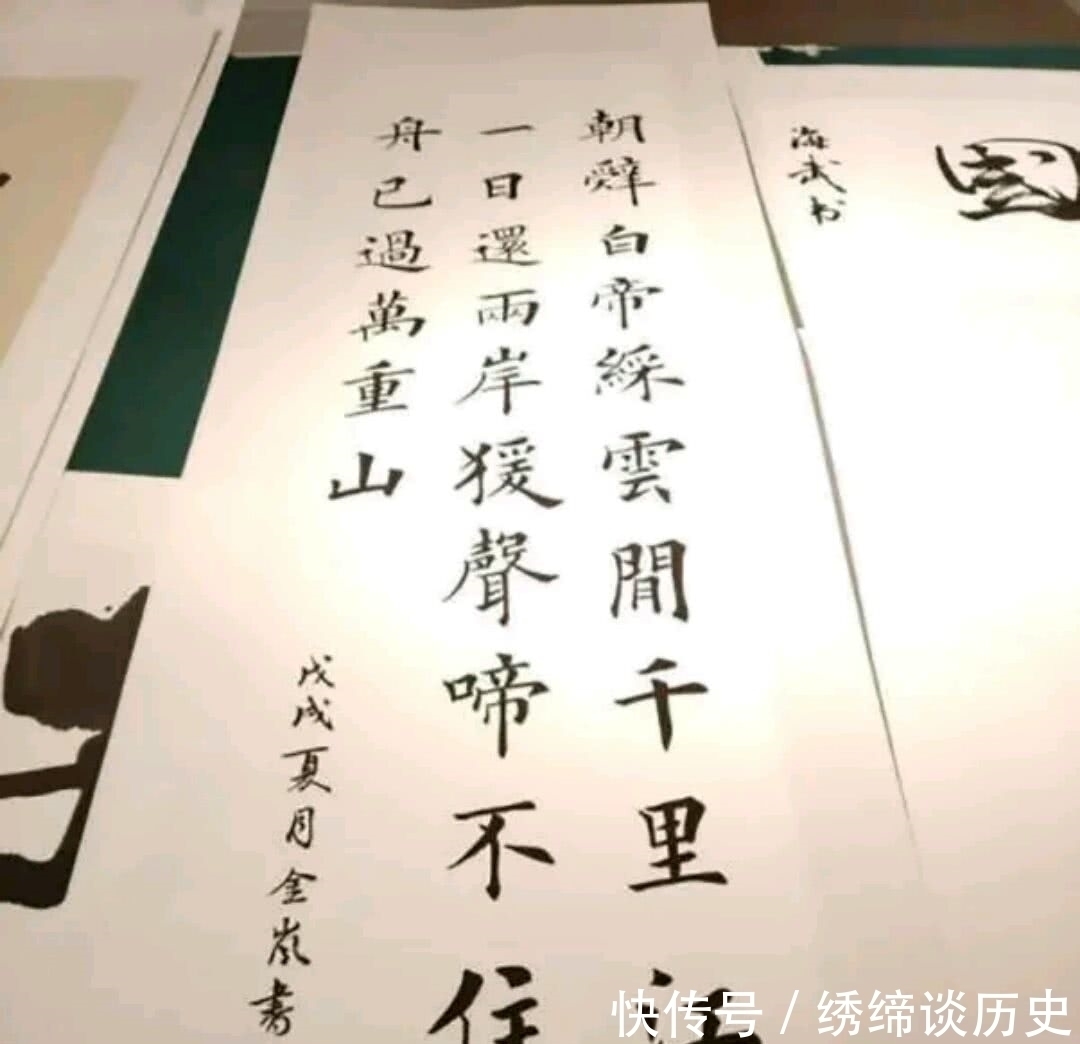 國
海武书
朝辭白帝綵雲閒千里江
一日還兩岸猨聲啼不住
舟已過萬重山
戊戌夏月金嵐書
快传号 / 绣缔谈历史